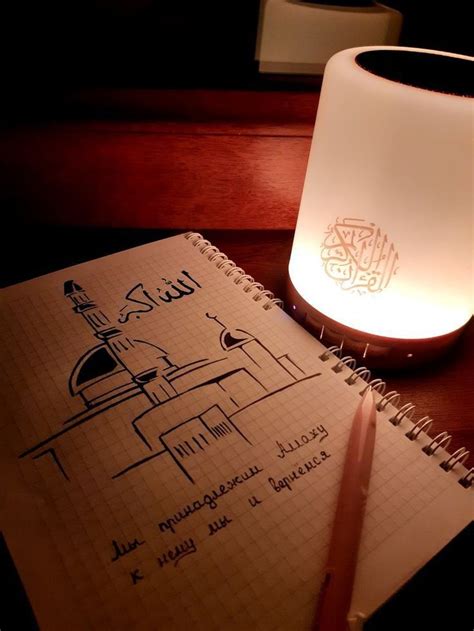 الله أكبر
القرآن الكريم
Мы принадлежим Аллаху
к нему мы и вернемся